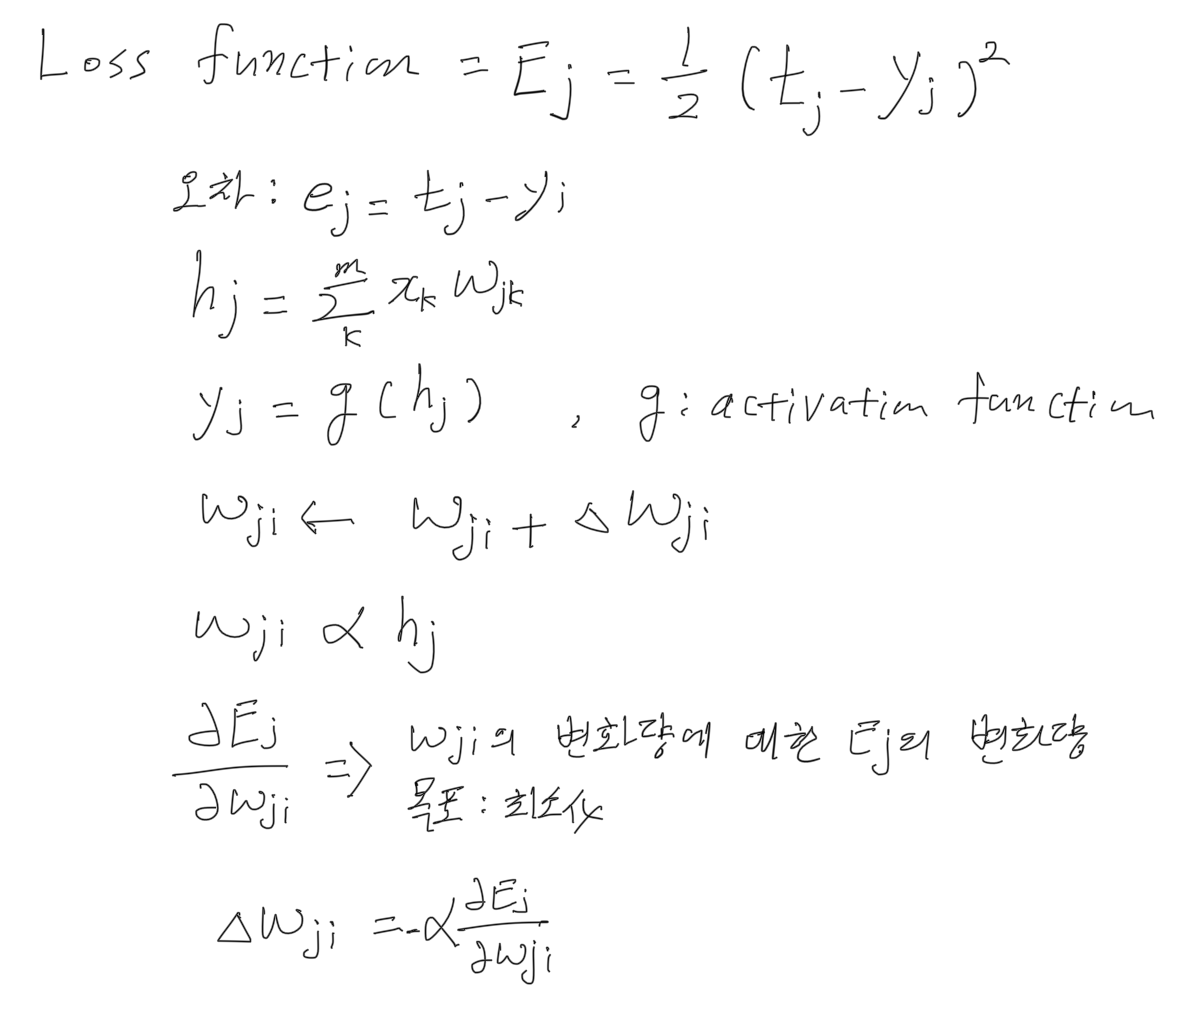 Loss function = Ej = 1/2 (tj - yj)²
오차 : ej = tj - yj
hj = Σ_k^m xk wjk
yj = g(hj) , g : activation function
wji ← wji + △wji
wji ∝ hj
∂Ej/∂wji => wji의 변화량에 대한 Ej의 변화량
목표 : 최소화
△wji = -α ∂Ej/∂wji